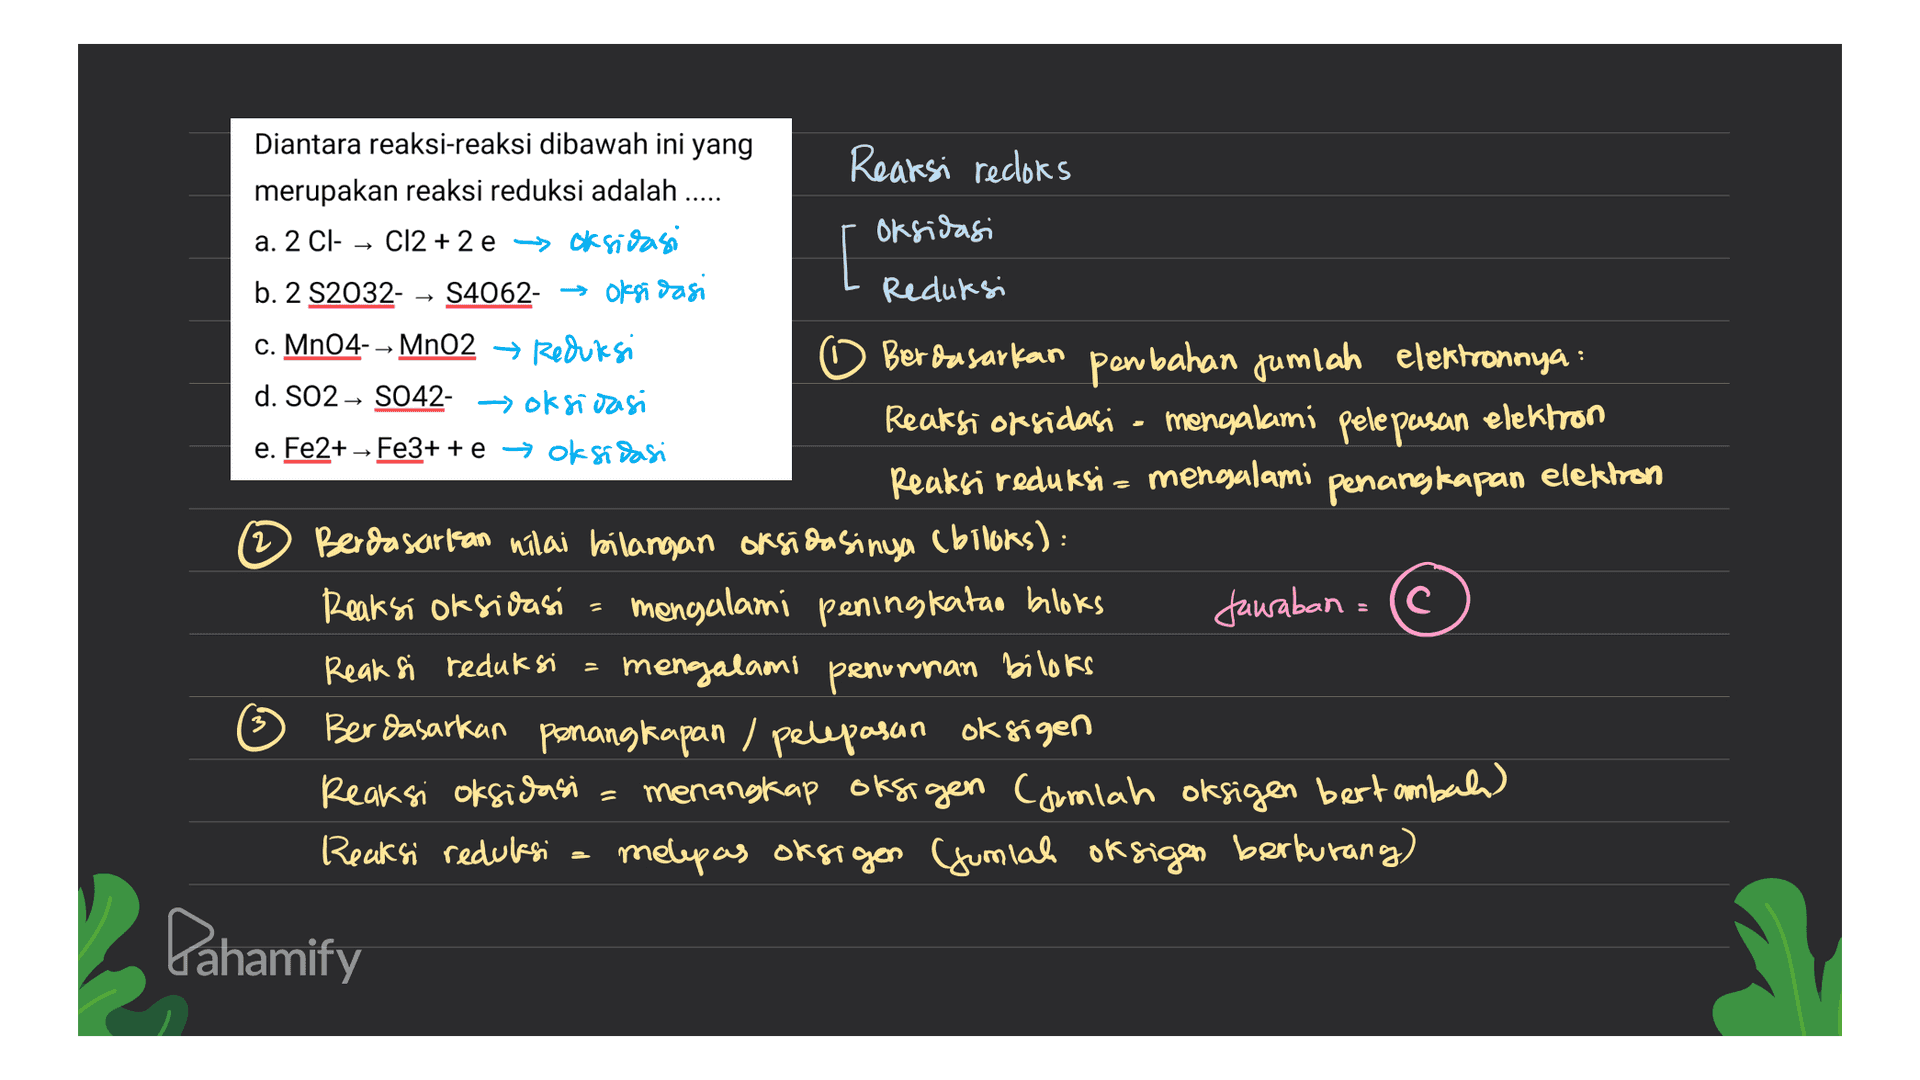 Diantara reaksi-reaksi dibawah ini yang
merupakan reaksi reduksi adalah .....
a. 2 Cl- → Cl2 + 2 e → oksidasi
b. 2 S2O32- → S4O62- → oksidasi
c. MnO4- → MnO2 → Reduksi
d. SO2 → SO42- → oksidasi
e. Fe2+ → Fe3+ + e → oksidasi
Reaksi redoks
Oksidasi
Reduksi
① Berdasarkan perubahan jumlah elektronnya :
Reaksi oksidasi - mengalami pelepasan elektron
Reaksi reduksi = mengalami penangkapan elektron
② Berdasarkan nilai bilangan oksidasinya (biloks) :
Reaksi oksidasi = mengalami peningkatan biloks
Jawaban = C
Reaksi reduksi = mengalami penurunan biloks
③ Berdasarkan penangkapan / pelepasan oksigen
Reaksi oksidasi = menangkap oksigen (jumlah oksigen bertambah)
Reaksi reduksi = melepas oksigen (jumlah oksigen berkurang)
Pahamify